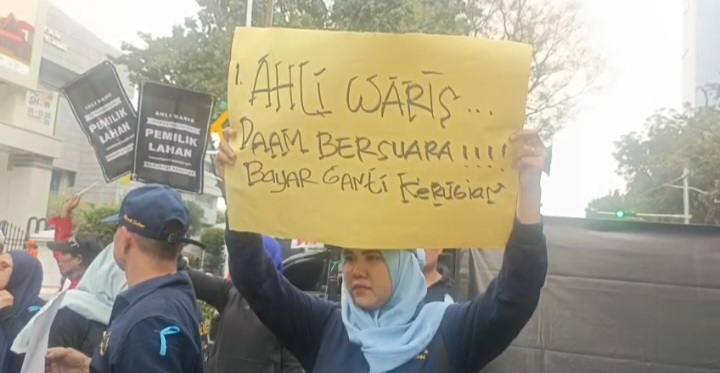 1. AHLi WARiS...
DAAM BERSUARA !!!!
BAYAR GANti KERUGiAN
AHLI WARIS
PEMILIK
LAHAN
AHLI WARIS
PEMILIK
LAHAN